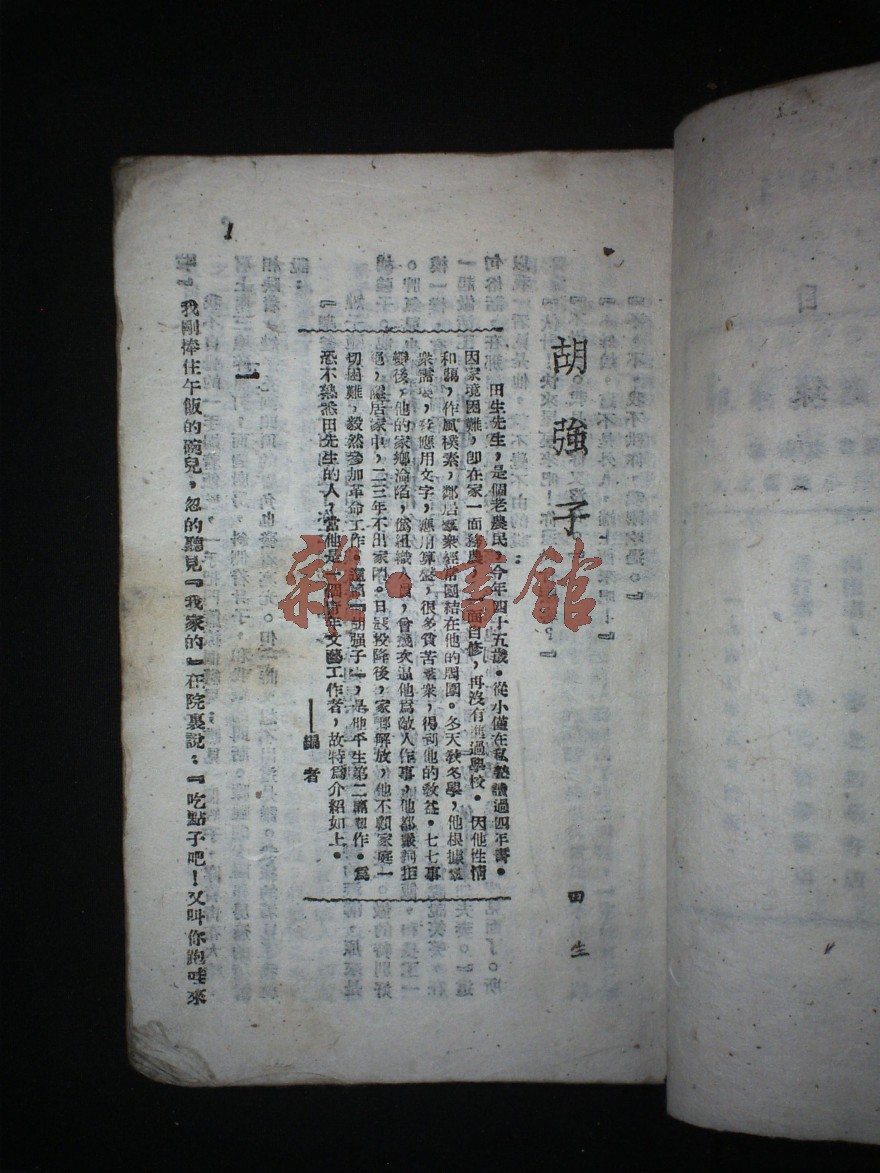 胡強子
田生
田生先生，是個老農民，今年四十五歲。從小僅在私塾讀過四年書。
因家境困難，卽在家一面務農，一面自修，再沒有進過學校。因他性情
和藹，作風樸素，鄰居羣衆經常團結在他的周圍。冬天教冬學，他根據羣
衆需要，教應用文字，應用算盤，很多貧苦羣衆，得到他的教益。七七事
變後，他的家鄉淪陷，僞組織人員，曾幾次逼他爲敵人作事，他都嚴詞拒
絕，隱居家中，二三年不出家門。日寇投降後，家鄉解放，他不顧家庭一
切困難，毅然參加革命工作。這篇『胡强子』，是他平生第二篇創作。爲
恐不熟悉田先生的人，當他是一個靑年文藝工作者，故特爲介紹如上。
——編者
一
我剛捧住午飯的碗兒，忽的聽見『我家的』在院裏說：『吃點子吧！又叫你跑哇來
雜·書館